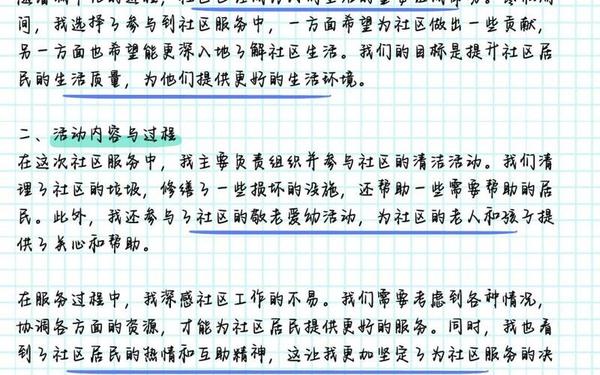 间，我选择了参与到社区服务中，一方面希望为社区做出一些贡献，
另一方面也希望能更深入地了解社区生活。我们的目标是提升社区居
民的生活质量，为他们提供更好的生活环境。
二、活动内容与过程
在这次社区服务中，我主要负责组织并参与社区的清洁活动。我们清
理了社区的垃圾，修缮了一些损坏的设施，还帮助一些需要帮助的居
民。此外，我还参与了社区的敬老爱幼活动，为社区的老人和孩子提
供了关心和帮助。
在服务过程中，我深感社区工作的不易。我们需要考虑到各种情况，
协调各方面的资源，才能为社区居民提供更好的服务。同时，我也看
到了社区居民的热情和互助精神，这让我更加坚定了为社区服务的决